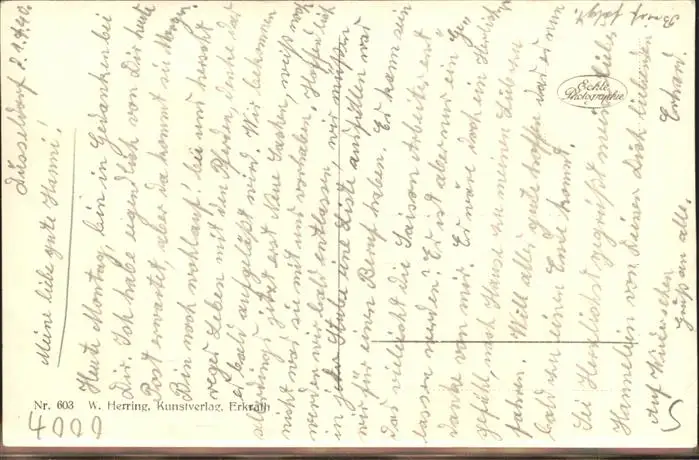 Düsseldorf d. 1.4.40.
Meine liebe gute Hanni!
Heute Montag, bin in Gedanken bei
Dir. Ich habe eigendlich von Dir heute
Post erwartet, aber da kommt sie Morgen.
Bin noch wohlauf! hier und herscht
reges Leben mit den Pferden, denke das
es bald aufgelößt wird. Wir bekommen
allerdings jetzt erst Neue Sachen, weiß noch
nicht was sie mit uns vorhaben, Hoffendlich
werden wir bald entlassen, wir müßten
in jeder Stube eine Liste aufstellen was
wir für einen Beruf haben. Es kann sein
das vieleicht die Saison Arbeiter ent¬
lassen werden! Es ist aber nur ein G¬
danke von mir. Es wäre doch ein Herrliches
gefühl, nach Hause zu meinen Lieben
fahren. Will alles gute hoffen das er nun
bald ein Ende kommt.
Sei Herzlichst gegrüßt mein liebes
Hannelein von Deinen Dich liebenden
Erhard.
Auf Wiedersehen
Gruß an alle.
Brief folgt.
Echte
Photographie
Nr. 603 W. Herring, Kunstverlag, Erkrath
4000